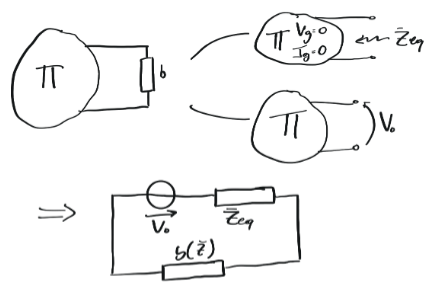 π
b
π Vg=0
Ig=0
Z̄eq
π
V₀
⇒
V₀
Z̄eq
b(z̄)